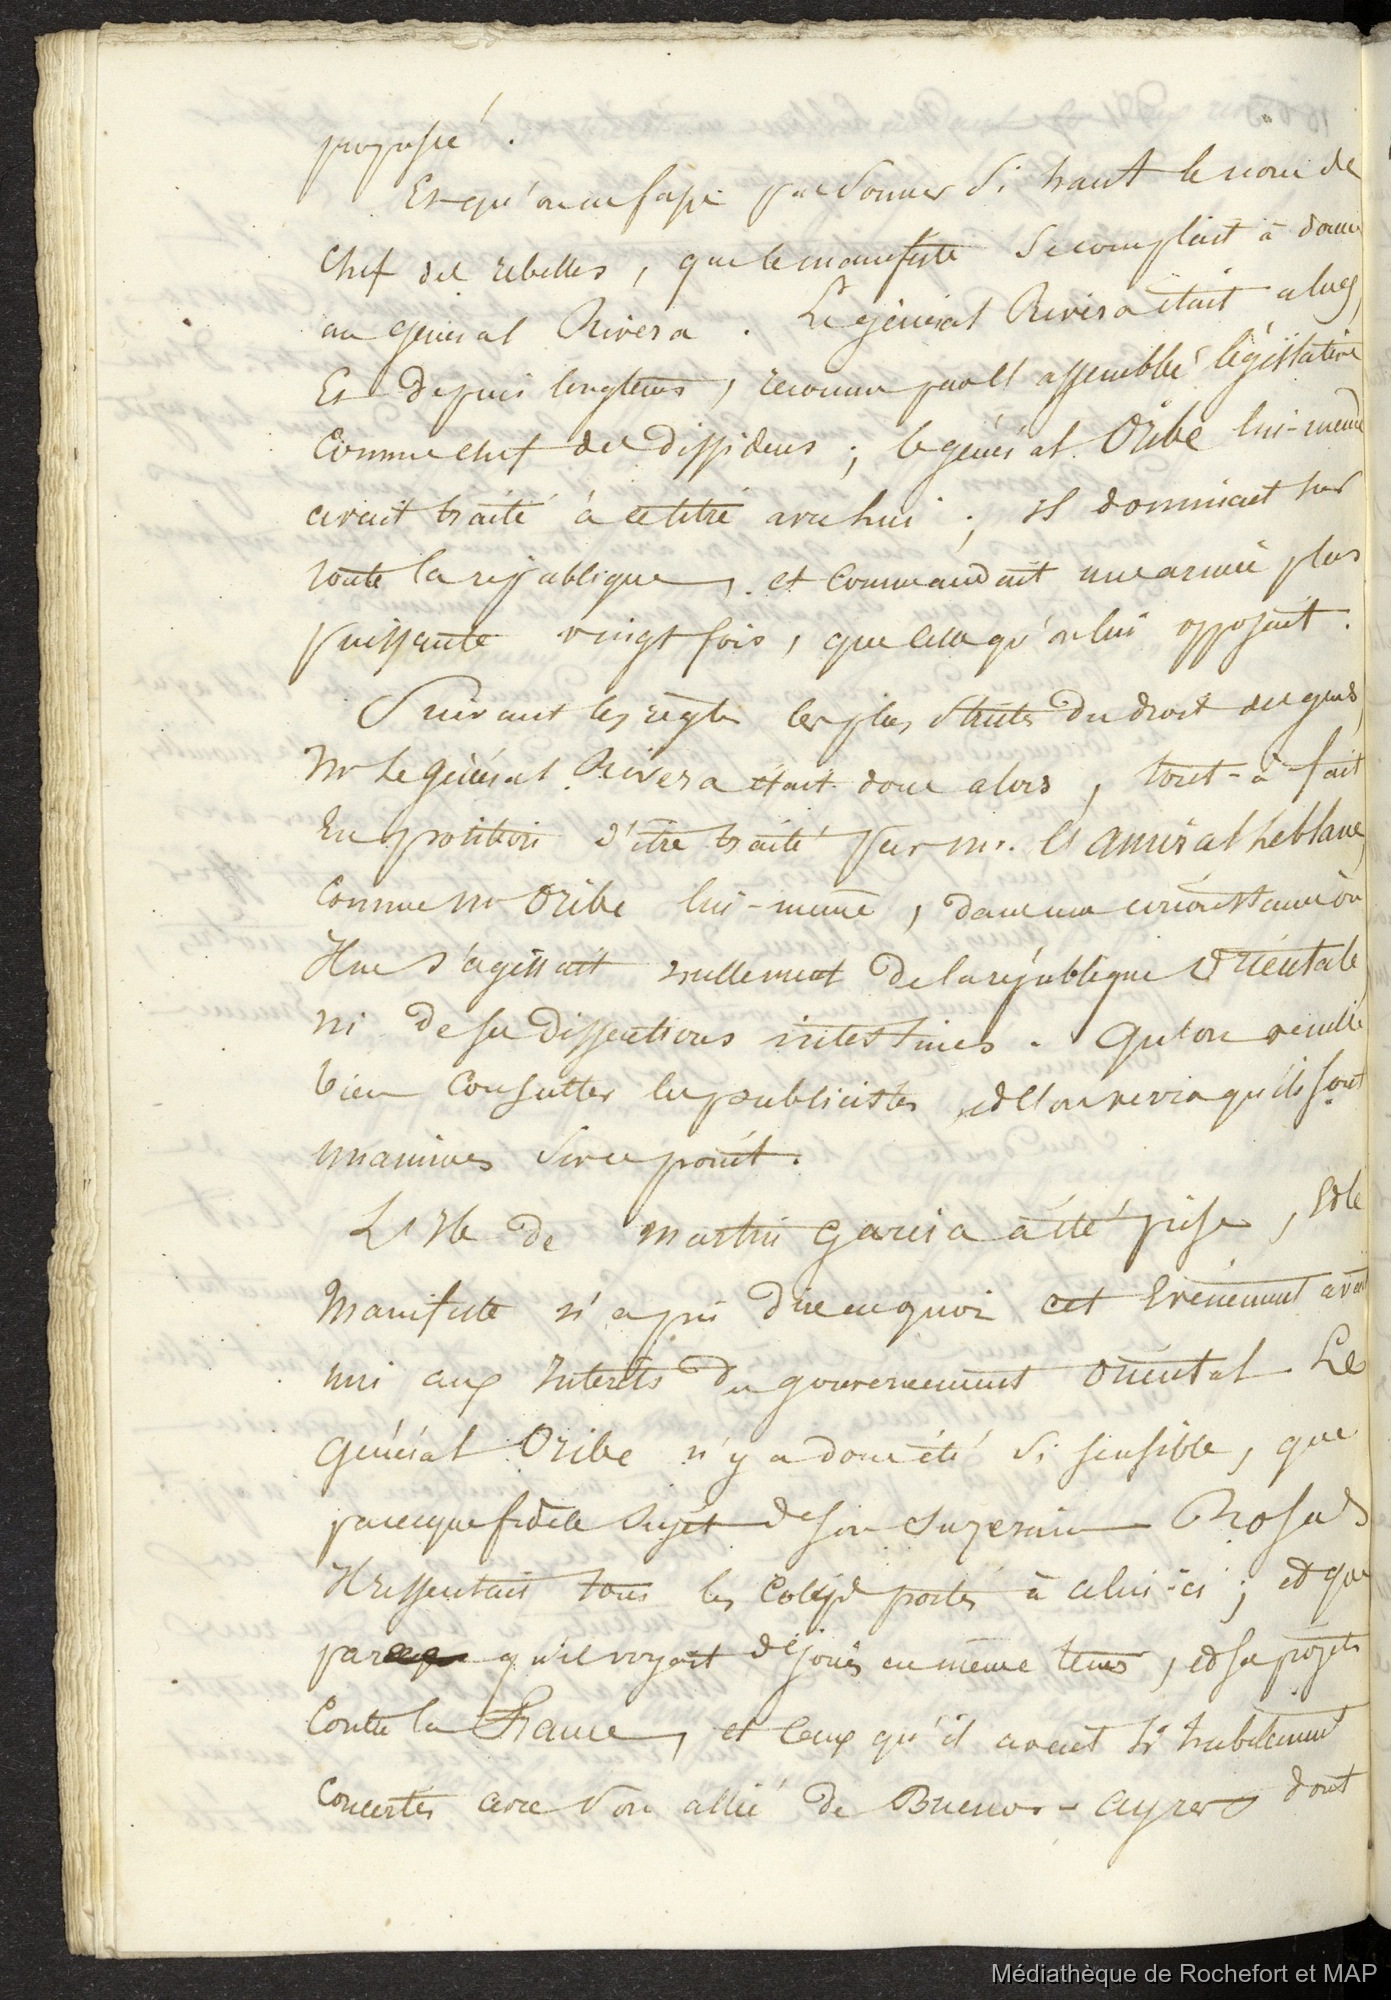 proposée.
Et qu'on ne fasse pas sonner si haut le nom de
chef des rebelles, que le manifeste se complait à donner
au général Rivera. Le général Rivera était alors,
Et depuis longtems, reconnu par l'assemblée législative
Comme chef des dissidens ; le général Oribe lui-même
avait traité à ce titre avec lui ; il dominait sur
toute la république, et commandait une armée plus
puissante vingt fois, que celle qu'on lui opposait.
Suivant les règles les plus strictes du droit des gens,
Mr le général Rivera était donc alors, tout-à fait
En position d'être traité par mr. l'amiral Leblanc,
Comme Mr Oribe lui-même, dans une circonstance où
Il ne s'agissait nullement de la république Orientale
ni de ses dissentions intestines. Qu'on veuille
bien consulter les publicistes, et l'on verra qu'ils sont
unanimes sur ce point.
L'Ile de Martin Garcia a été prise, et le
Manifeste n'a pu dire en quoi cet Evénement avait
nui aux Intérêts du gouvernement oriental. Le
Général Oribe n'y a donc été si sensible, que
parceque fidèle sujet de son suzerain Rosas
Il ressentait tous les coups portés à celui-ci ; et que
parce qu'il voyait déjoués en même tems, et ses projets
Contre la France, et ceux qu'il avait si habilement
concertés avec son allié de Buenos-Ayres dont
Médiathèque de Rochefort et MAP